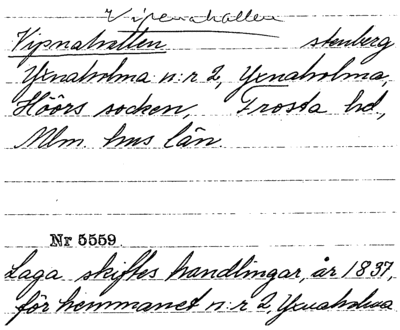 Vipenahallen
Vipnahallen stenberg
Yxnaholma n:r 2, Yxnaholma,
Höörs socken, Frosta hd.,
Mlm. hus län.
Nr 5559.
Laga skiftes handlingar, år 1837,
för hemmanet n:r 2, Yxnaholma